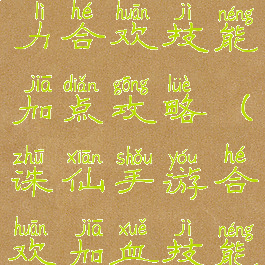 lì hé huān jì néng
力合欢技能
jiā diǎn gōng lüè
加点攻略（
zhū xiān shǒu yóu hé
诛仙手游合
huān jiā xuě jì néng
欢加血技能